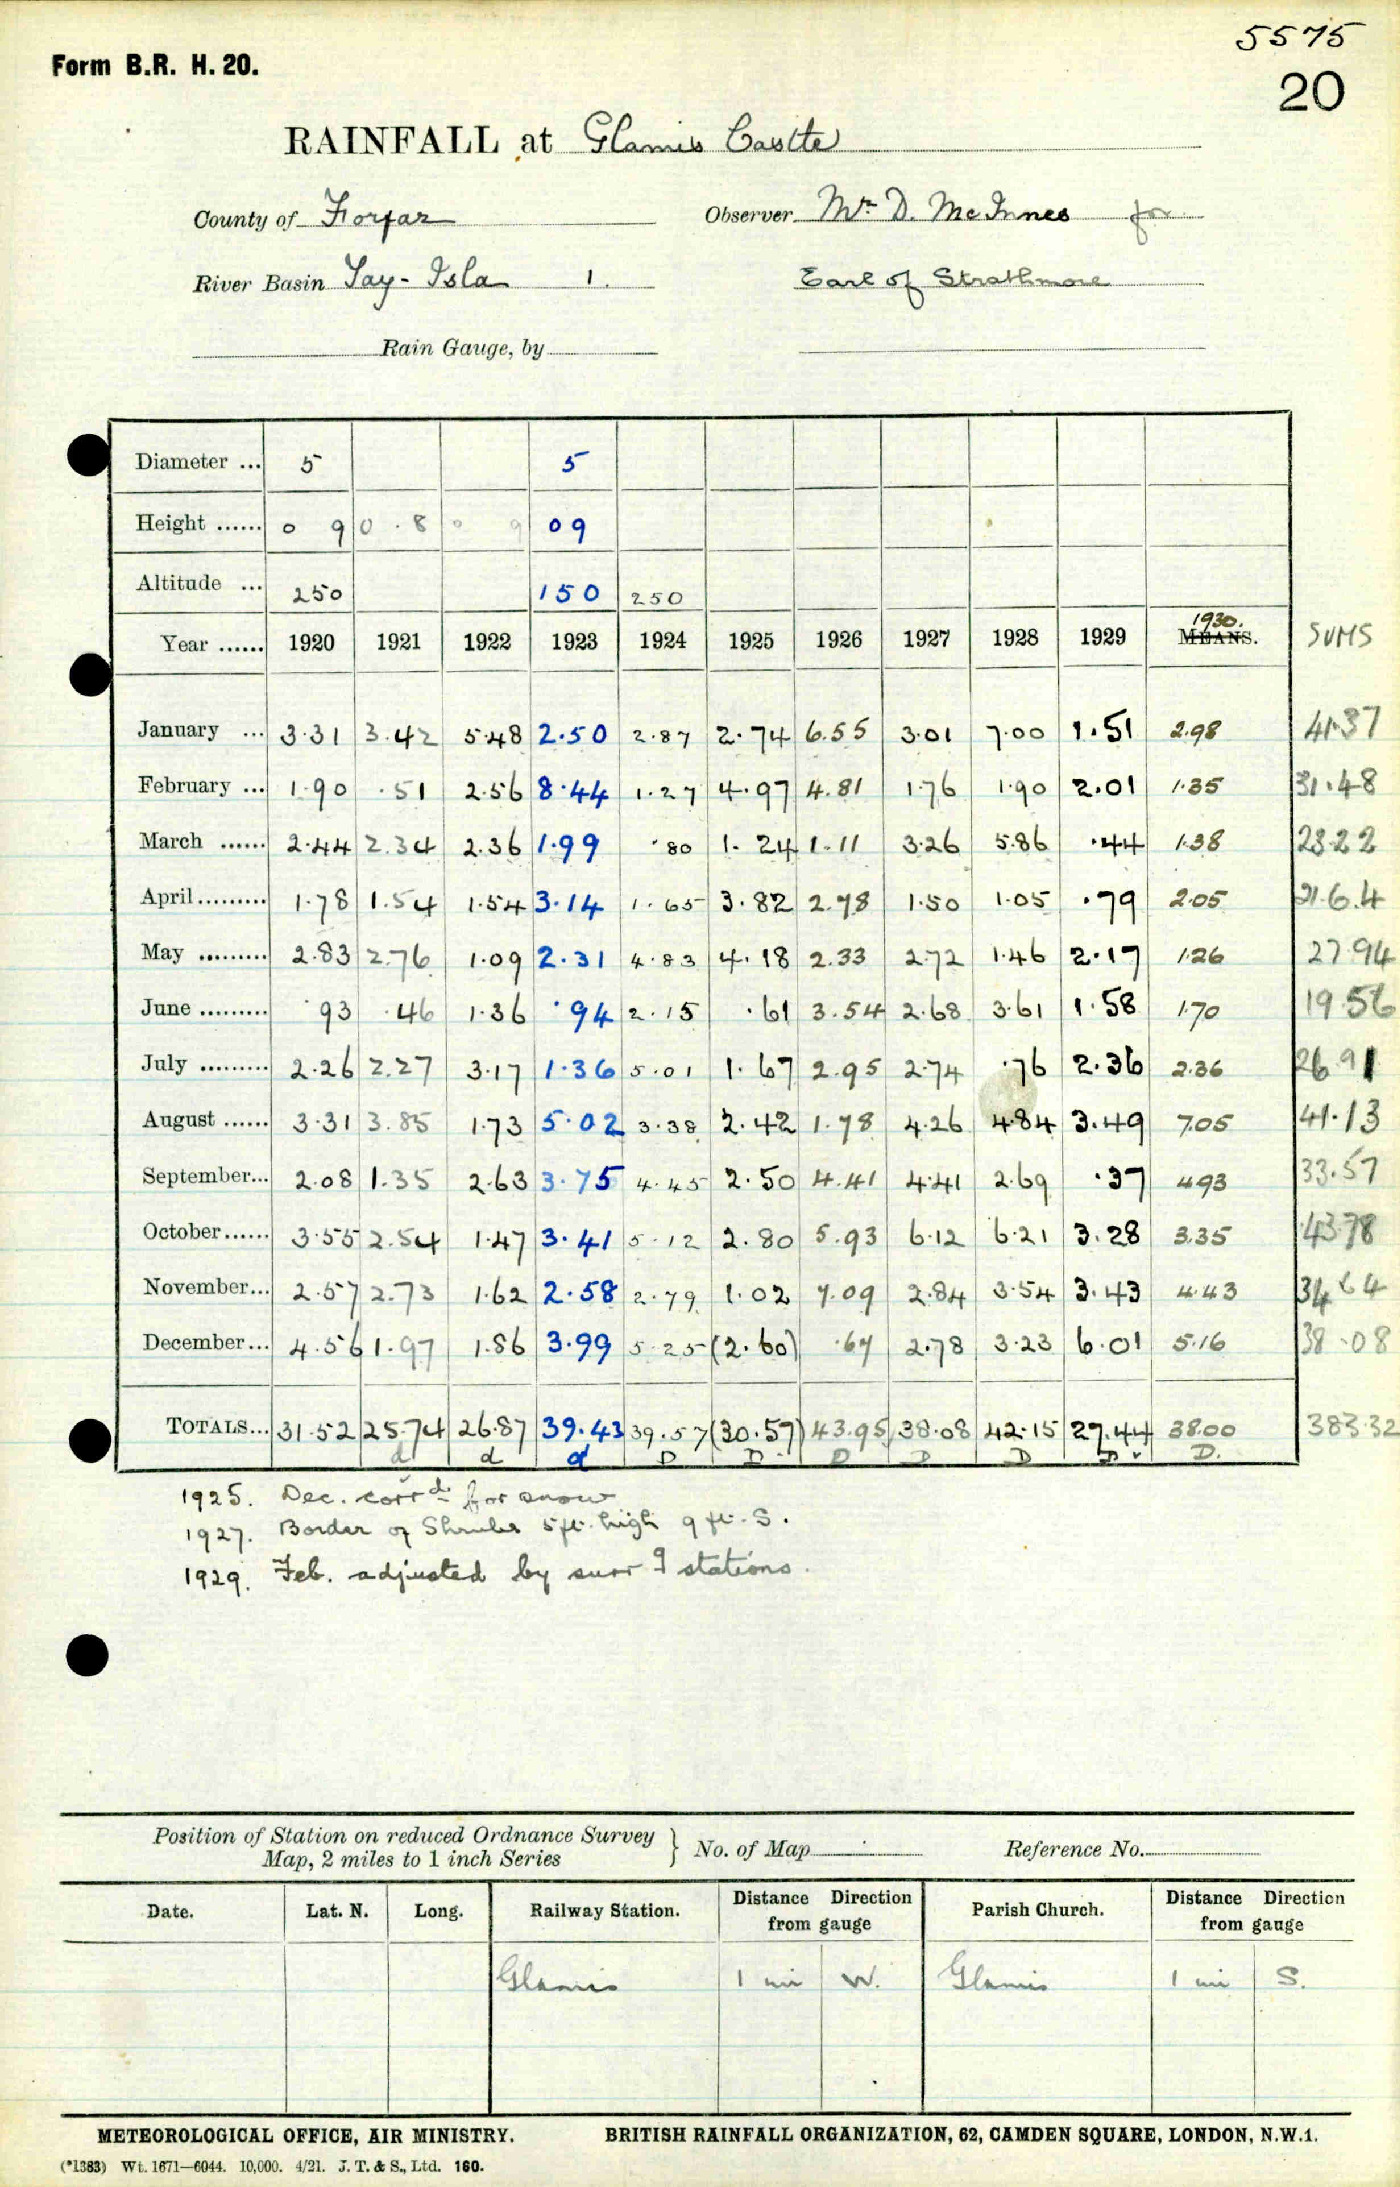 5575
Form B.R. H. 20.
20
RAINFALL at Glamis Castle
County of Forfar Observer Mr. D. McInnes for
River Basin Tay - Isla 1. Earl of Strathmore
Rain Gauge, by
Diameter ... 5 5
Height ...... 0 9 0.8 0 9 09
Altitude ... 250 150 250
Year ...... 1920 1921 1922 1923 1924 1925 1926 1927 1928 1929 MEANS. 1930. SUMS
January ... 3.31 3.42 5.48 2.50 2.87 2.74 6.55 3.01 7.00 1.51 2.98 41.37
February ... 1.90 .51 2.56 8.44 1.27 4.97 4.81 1.76 1.90 2.01 1.35 31.48
March ...... 2.44 2.34 2.36 1.99 .80 1.24 1.11 3.26 5.86 .44 1.38 23.22
April ......... 1.78 1.54 1.54 3.14 1.65 3.82 2.78 1.50 1.05 .79 2.05 21.64
May ......... 2.83 2.76 1.09 2.31 4.83 4.18 2.33 2.72 1.46 2.17 1.26 27.94
June ......... .93 .46 1.36 .94 2.15 .61 3.54 2.68 3.61 1.58 1.70 19.56
July ......... 2.26 2.27 3.17 1.36 5.01 1.67 2.95 2.74 .76 2.36 2.36 26.91
August ...... 3.31 3.85 1.73 5.02 3.38 2.42 1.78 4.26 4.84 3.49 7.05 41.13
September... 2.08 1.35 2.63 3.75 4.45 2.50 4.41 4.41 2.69 .37 4.93 33.57
October...... 3.55 2.54 1.47 3.41 5.12 2.80 5.93 6.12 6.21 3.28 3.35 43.78
November... 2.57 2.73 1.62 2.58 2.79 1.02 7.09 2.84 3.54 3.43 4.43 34.64
December... 4.56 1.97 1.86 3.99 5.25 (2.60) .67 2.78 3.23 6.01 5.16 38.08
TOTALS... 31.52 25.74 26.87 39.43 39.57 (30.57) 43.95 38.08 42.15 27.44 38.00 383.32
d d d D D D D D D D.
1925. Dec. corrd. for snow
1927. Border of Shrubs 5ft. high 9 ft. S.
1929. Feb. adjusted by surrg stations.
Position of Station on reduced Ordnance Survey
Map, 2 miles to 1 inch Series } No. of Map Reference No.
Date. Lat. N. Long. Railway Station. Distance Direction from gauge Parish Church. Distance Direction from gauge
Glamis 1 mi W. Glamis 1 mi S.
METEOROLOGICAL OFFICE, AIR MINISTRY. BRITISH RAINFALL ORGANIZATION, 62, CAMDEN SQUARE, LONDON, N.W.1.
(*1383) Wt. 1671—6044. 10,000. 4/21. J. T. & S., Ltd. 160.